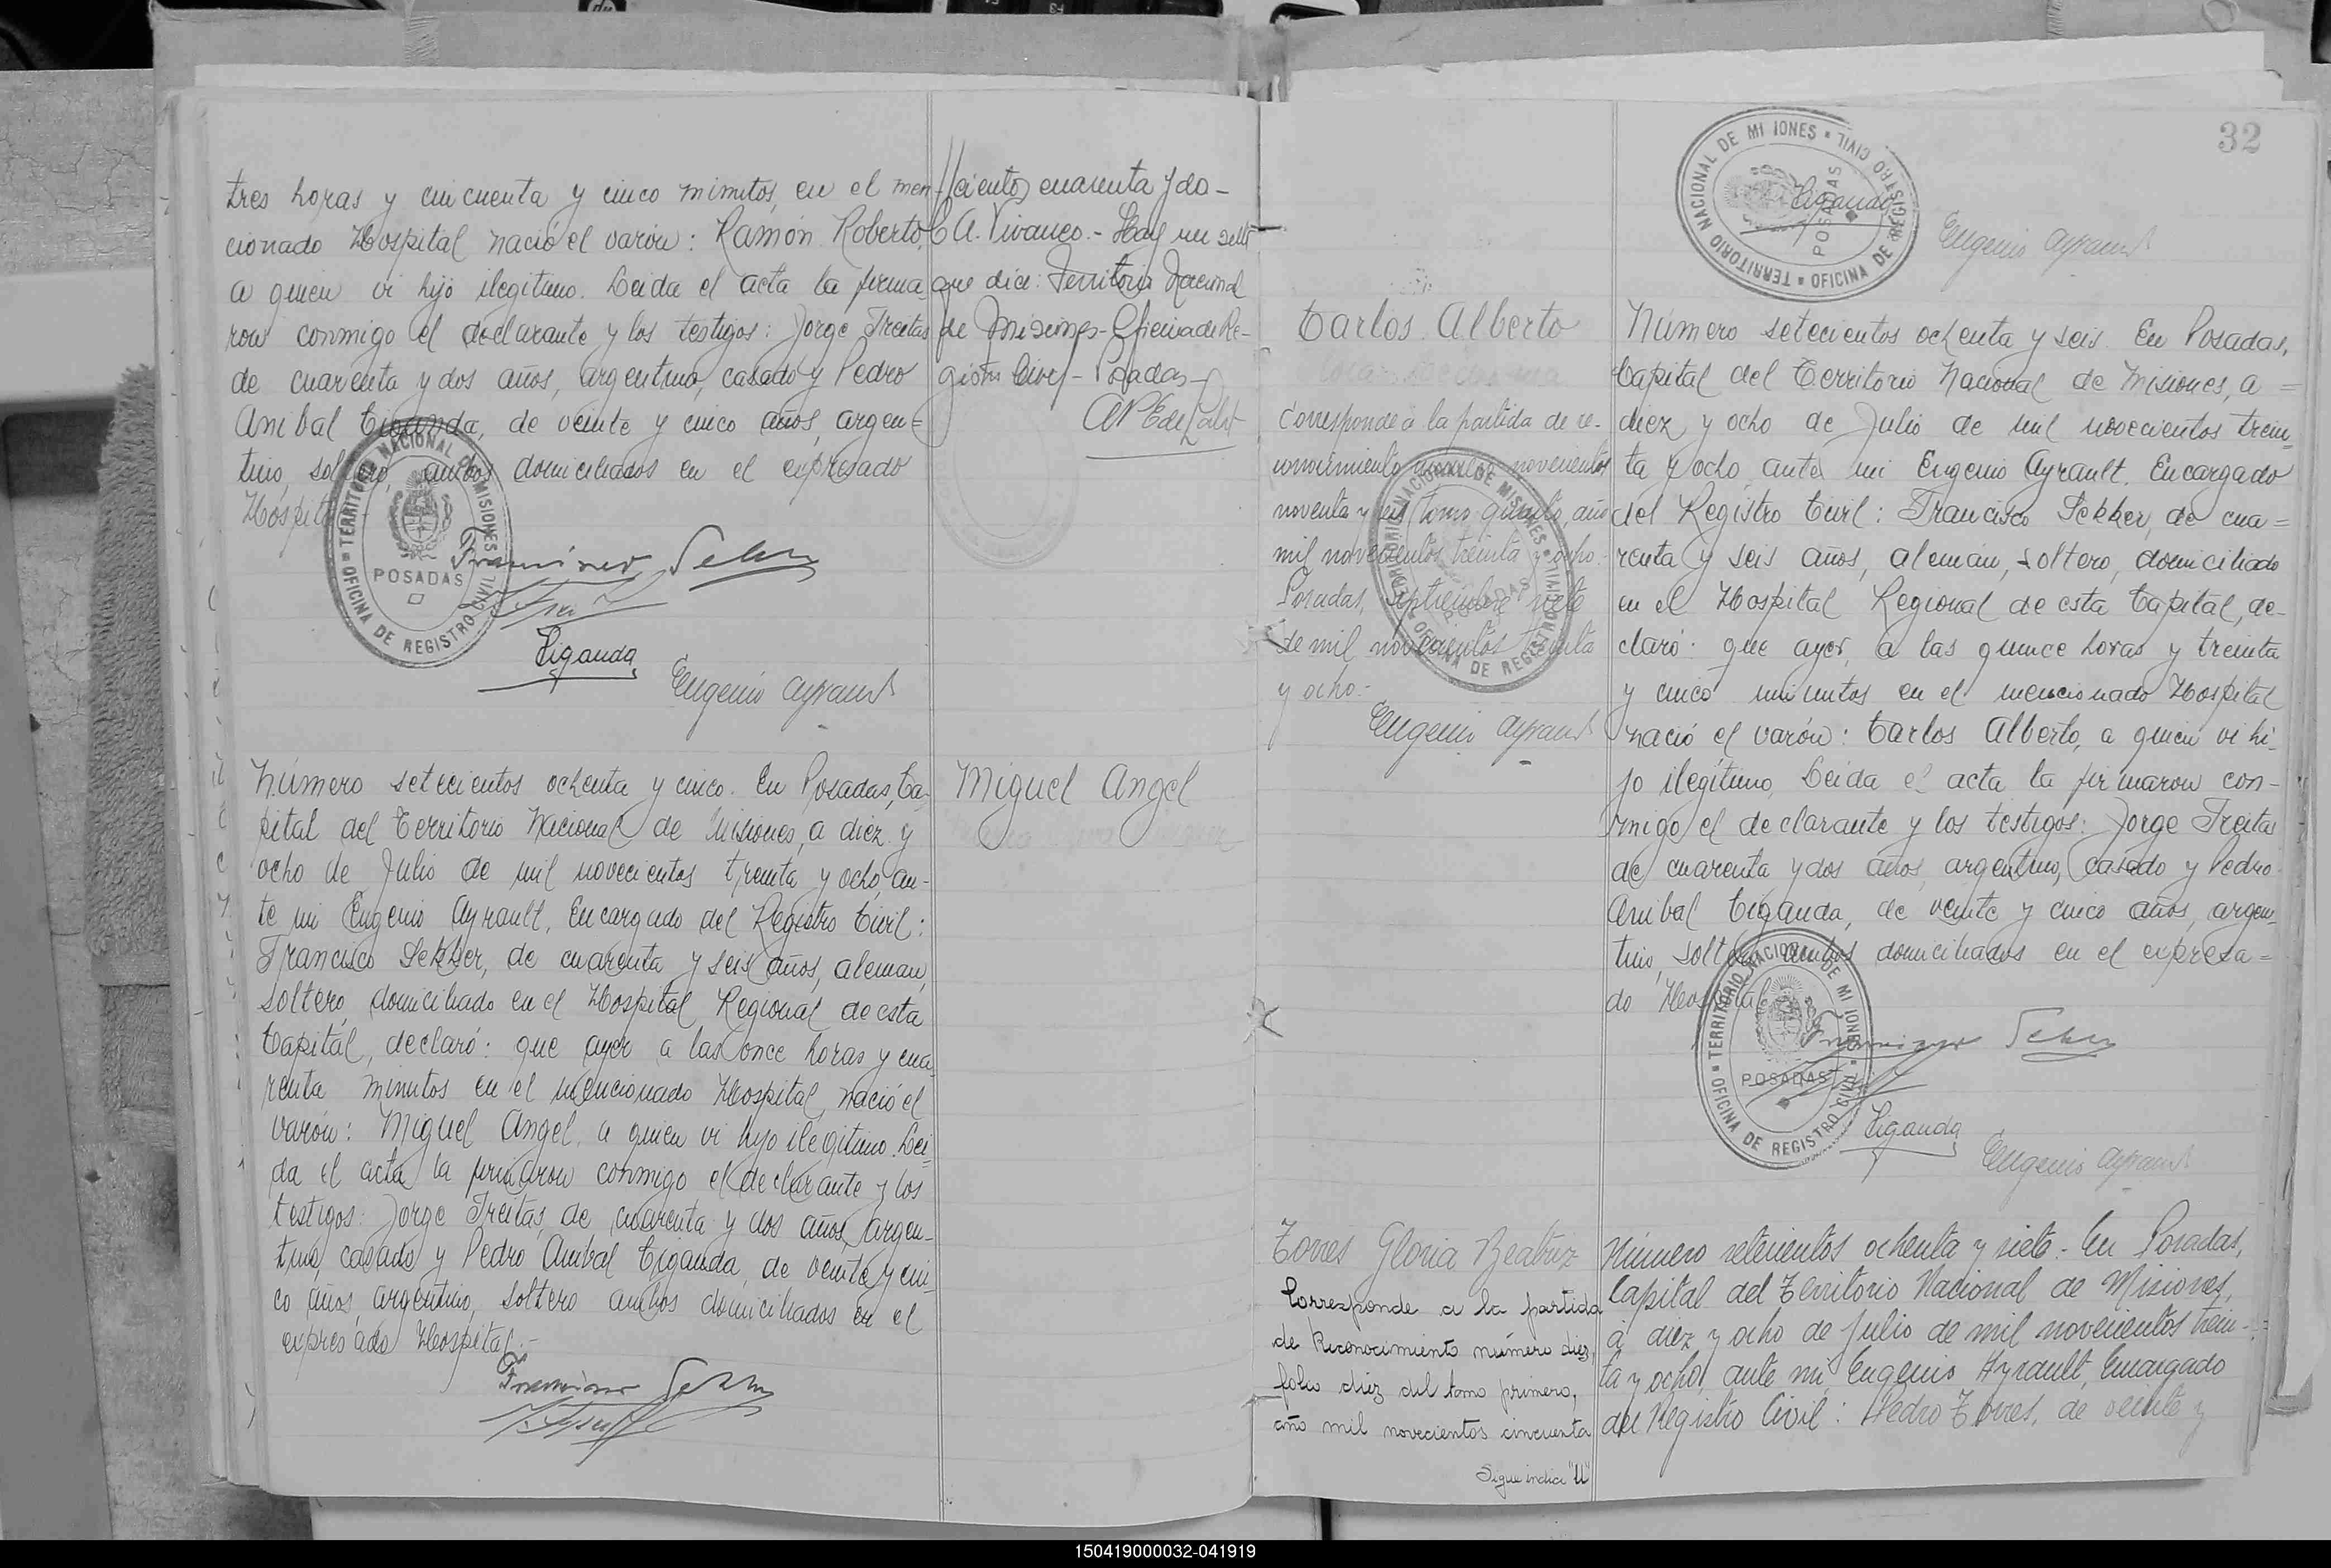 tres horas y cincuenta y cinco minutos, en el men-
cionado Hospital nació el varón: Ramón Roberto,
a quien vi hijo ilegitimo. Leida el acta la firma-
ron conmigo el declarante y los testigos: Jorge Freitas
de cuarenta y dos años, argentino, casado y Pedro
Anibal Ciganda, de veinte y cinco años, argen=
tino, soltero, ambos domiciliados en el expresado
Hospital
TERRITORIO NACIONAL DE MISIONES
OFICINA DE REGISTRO CIVIL
POSADAS
Ciganda
Eugenio Ayrault
//cientos cuarenta y do-
E A. Vivanco.- Hay un sello
que dice: Territorio Nacional
de Misiones- Oficina de Re-
gistro Civil- Posadas-
Número setecientos ochenta y cinco. En Posadas, Ca-
pital del Territorio Nacional de Misiones, a diez y
ocho de Julio de mil novecientos treinta y ocho, an-
te mi Eugenio Ayrault, Encargado del Registro Civil:
Francisco Sekker, de cuarenta y seis años, aleman,
soltero, domiciliado en el Hospital Regional de esta
Capital, declaró: que ayer a las once horas y cua-
renta minutos en el mencionado Hospital, nació el
varón: Miguel Angel, a quien vi hijo ilegitimo. Lei=
da el acta la firmaron conmigo el declarante y los
testigos: Jorge Freitas, de cuarenta y dos años, argen-
tino, casado y Pedro Anibal Ciganda, de veinte y cin-
co años, argentino, soltero ambos domiciliados en el
expresado Hospital.-
Miguel Angel
32
TERRITORIO NACIONAL DE MISIONES
OFICINA DE REGISTRO CIVIL
POSADAS
Ciganda
Eugenio Ayrault
Carlos Alberto
Corresponde a la partida de re-
conocimiento novecientos
noventa y tomo quinto, año
mil novecientos treinta y ocho.
Posadas, Septiembre siete
de mil novecientos treinta
y ocho.-
Eugenio Ayrault
TERRITORIO NACIONAL DE MISIONES
OFICINA DE REGISTRO CIVIL
POSADAS
Número setecientos ochenta y seis. En Posadas,
Capital del Territorio Nacional de Misiones, a =
diez y ocho de Julio de mil novecientos trein-
ta y ocho, ante mi Eugenio Ayrault, Encargado
del Registro Civil: Francisco Sekker, de cua=
renta y seis años, aleman, soltero, domiciliado
en el Hospital Regional de esta Capital, de-
claró: que ayer, a las quince horas y treinta
y cinco minutos en el mencionado Hospital
nació el varón: Carlos Alberto, a quien vi hi-
jo ilegítimo, Leida el acta la firmaron con-
migo el declarante y los testigos: Jorge Freitas
de cuarenta y dos años, argentino, casado y Pedro
Anibal Ciganda, de veinte y cinco años, argen-
tino, soltero ambos domiciliados en el expresa=
do Hospital
TERRITORIO NACIONAL DE MISIONES
OFICINA DE REGISTRO CIVIL
POSADAS
Ciganda
Eugenio Ayrault
Torres Gloria Beatriz
Corresponde a la partida
de Reconocimiento número diez,
folio diez del tomo primero,
año mil novecientos cincuenta
Sigue indice "U"
Número setecientos ochenta y siete.- En Posadas,
Capital del Territorio Nacional de Misiones,
a diez y ocho de julio de mil novecientos trein-
ta y ocho, ante mi, Eugenio Ayrault, Encargado
del Registro Civil: Pedro Torres, de veinte y
150419000032-041919